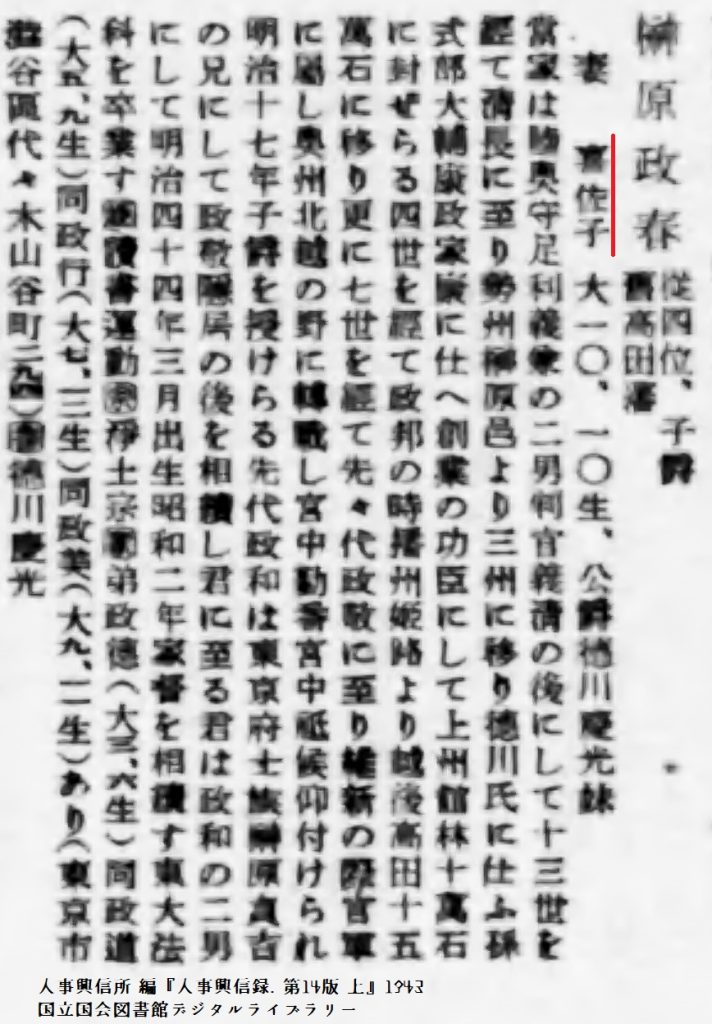 榊原政春
從四位、子爵
舊高田藩
妻 喜佐子 大一〇、一〇生、公爵德川慶光妹
當家は陸奧守足利義家の二男判官義淸の後にして十三世を
經て淸長に至り勢州榊原邑より三州に移り德川氏に仕ふ孫
式部大輔康政家康に仕へ創業の功臣にして上州館林十萬石
に封ぜらる四世を經て政邦の時播州姬路より越後高田十五
萬石に移り更に七世を經て先々代政敬に至り維新の際官軍
に屬し奧州北越の野に轉戰し宮中勤番宮中祗候仰付けられ
明治十七年子爵を授けらる先代政和は東京府士族榊原貞吉
の兄にして政敬隱居の後を相續し君に至る君は政和の二男
にして明治四十四年三月出生昭和二年家督を相續す東大法
科を卒業す 讀書運動 淨土宗 弟政德(大三、六生)同政道
(大五、九生)同政行(大七、三生)同政美(大九、一一生)あり(東京市
澁谷區代々木山谷町二九四) 德川慶光
人事興信所 編『人事興信録. 第14版 上』1943
国立国会図書館デジタルライブラリー